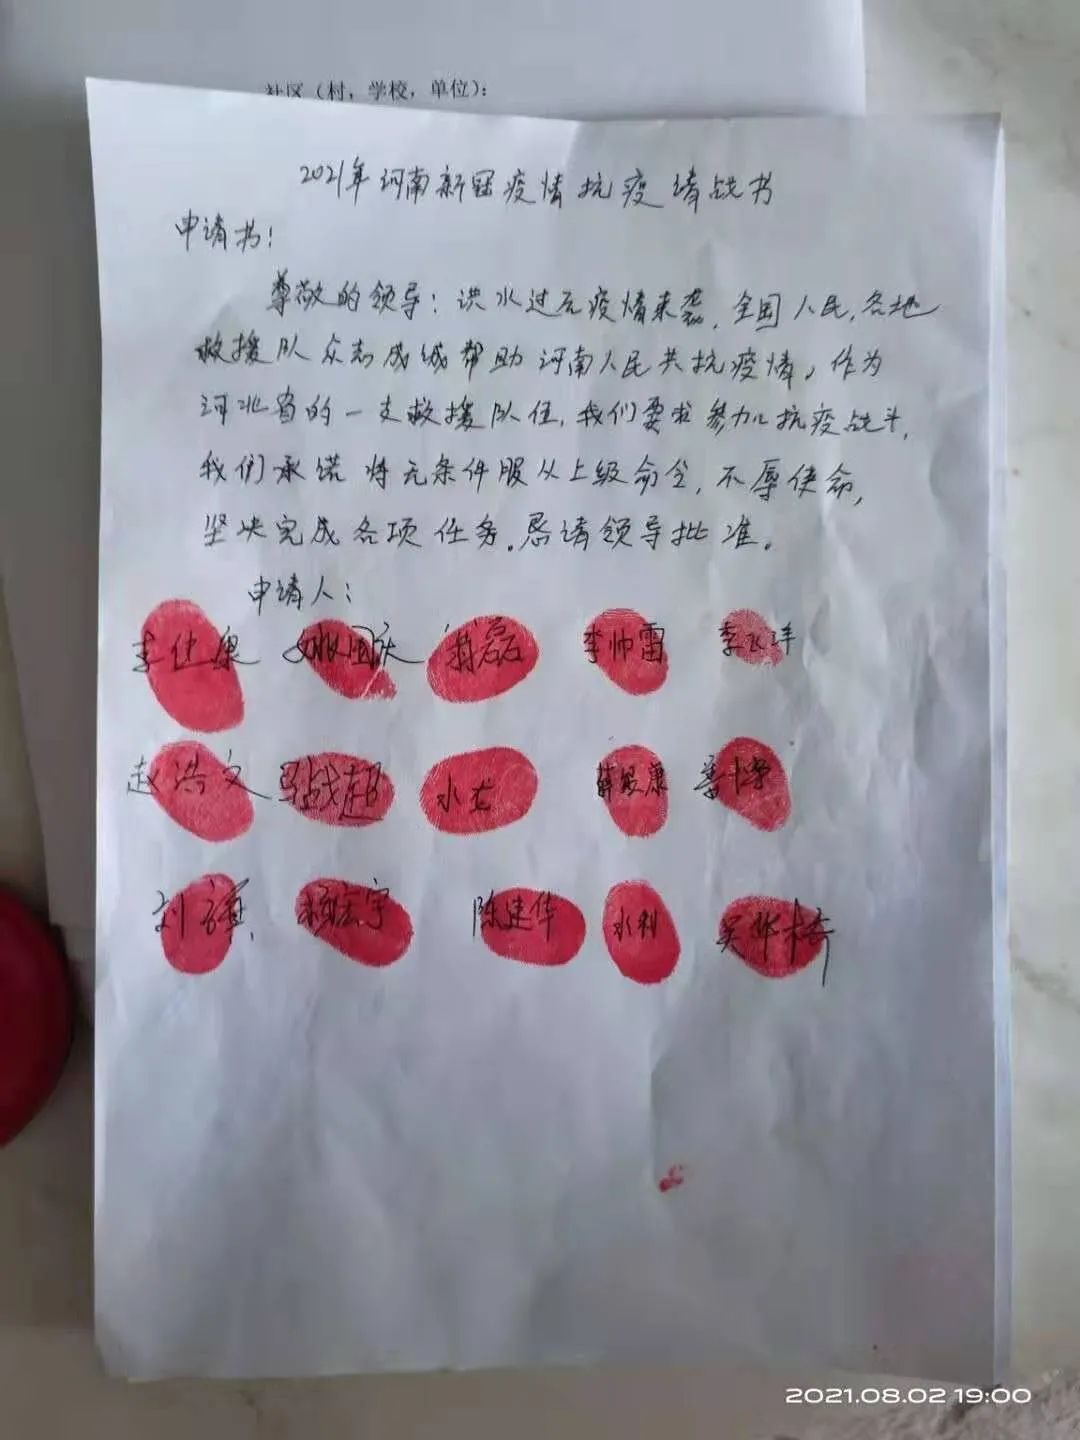 社区（村，学校，单位）：
2021年河南新冠疫情抗疫请战书
申请书！
尊敬的领导：洪水过后疫情来袭，全国人民，各地
救援队众志成城帮助河南人民共抗疫情，作为
河北省的一支救援队伍，我们要求参加抗疫战斗，
我们承诺将无条件服从上级命令，不辱使命，
坚决完成各项任务。恳请领导批准。
申请人：
李仕康 姚国庆 韩磊 李帅雷 李飞洋
赵浩文 马战超 水龙
刘 杨宏宇 陈建华 水利 吴华琦
2021.08.02 19:00